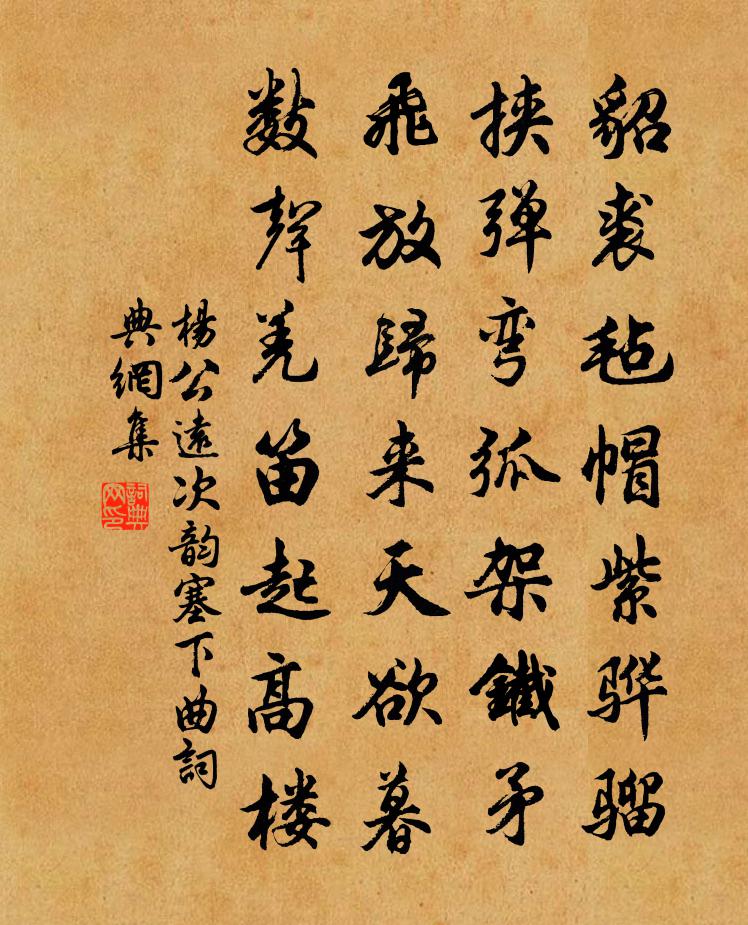 貂裘毡帽紫骅骝
挟弹弯弧架鐵矛
飛放歸来天欲暮
数聲羌笛起高楼
楊公遠次韵塞下曲詞
典網集
詞典网印